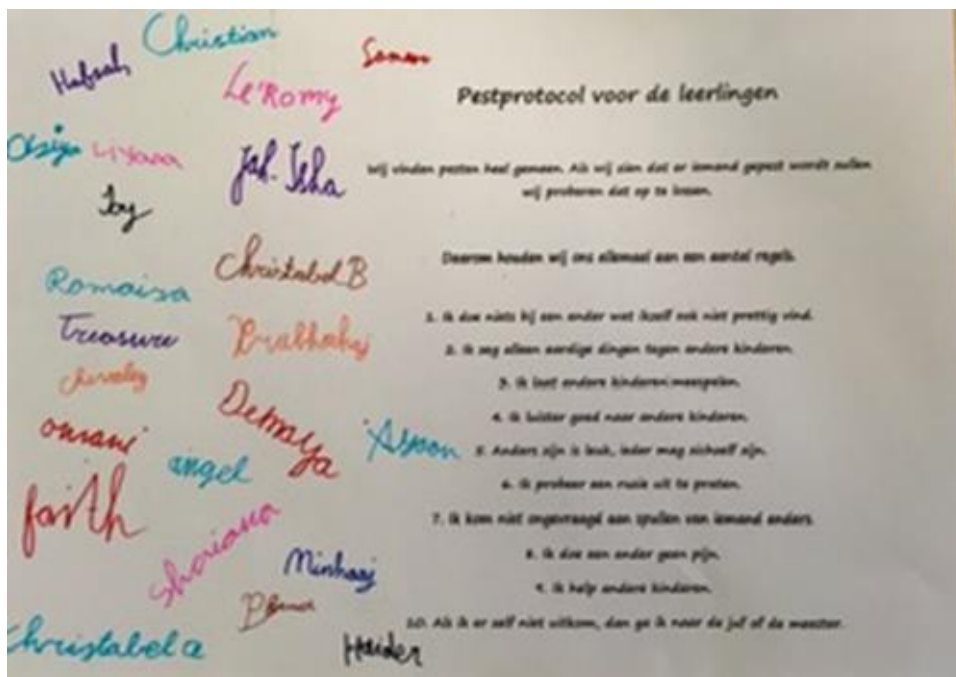 Christian
Hafsah
Le'Romy
Liyana
Juf. Isha
Joy
Romaisa
Christabel B
Treasure
Prabhahaj
omani
Demaya
Ayoon
angel
faith
Shoriana
Minhaaj
Christabel a
Haider
Pestprotocol voor de leerlingen
Wij vinden pesten heel gemeen. Als wij zien dat er iemand gepest wordt zullen
wij proberen dat op te lossen.
Daarom houden wij ons allemaal aan een aantal regels.
1. Ik doe niets bij een ander wat ikzelf ook niet prettig vind.
2. Ik zeg alleen aardige dingen tegen andere kinderen.
3. Ik laat andere kinderen meespelen.
4. Ik luister goed naar andere kinderen.
5. Anders zijn is leuk, ieder mag zichzelf zijn.
6. Ik probeer een ruzie uit te praten.
7. Ik kom niet ongevraagd aan spullen van iemand anders.
8. Ik doe een ander geen pijn.
9. Ik help andere kinderen.
10. Als ik er zelf niet uitkom, dan ga ik naar de juf of de meester.